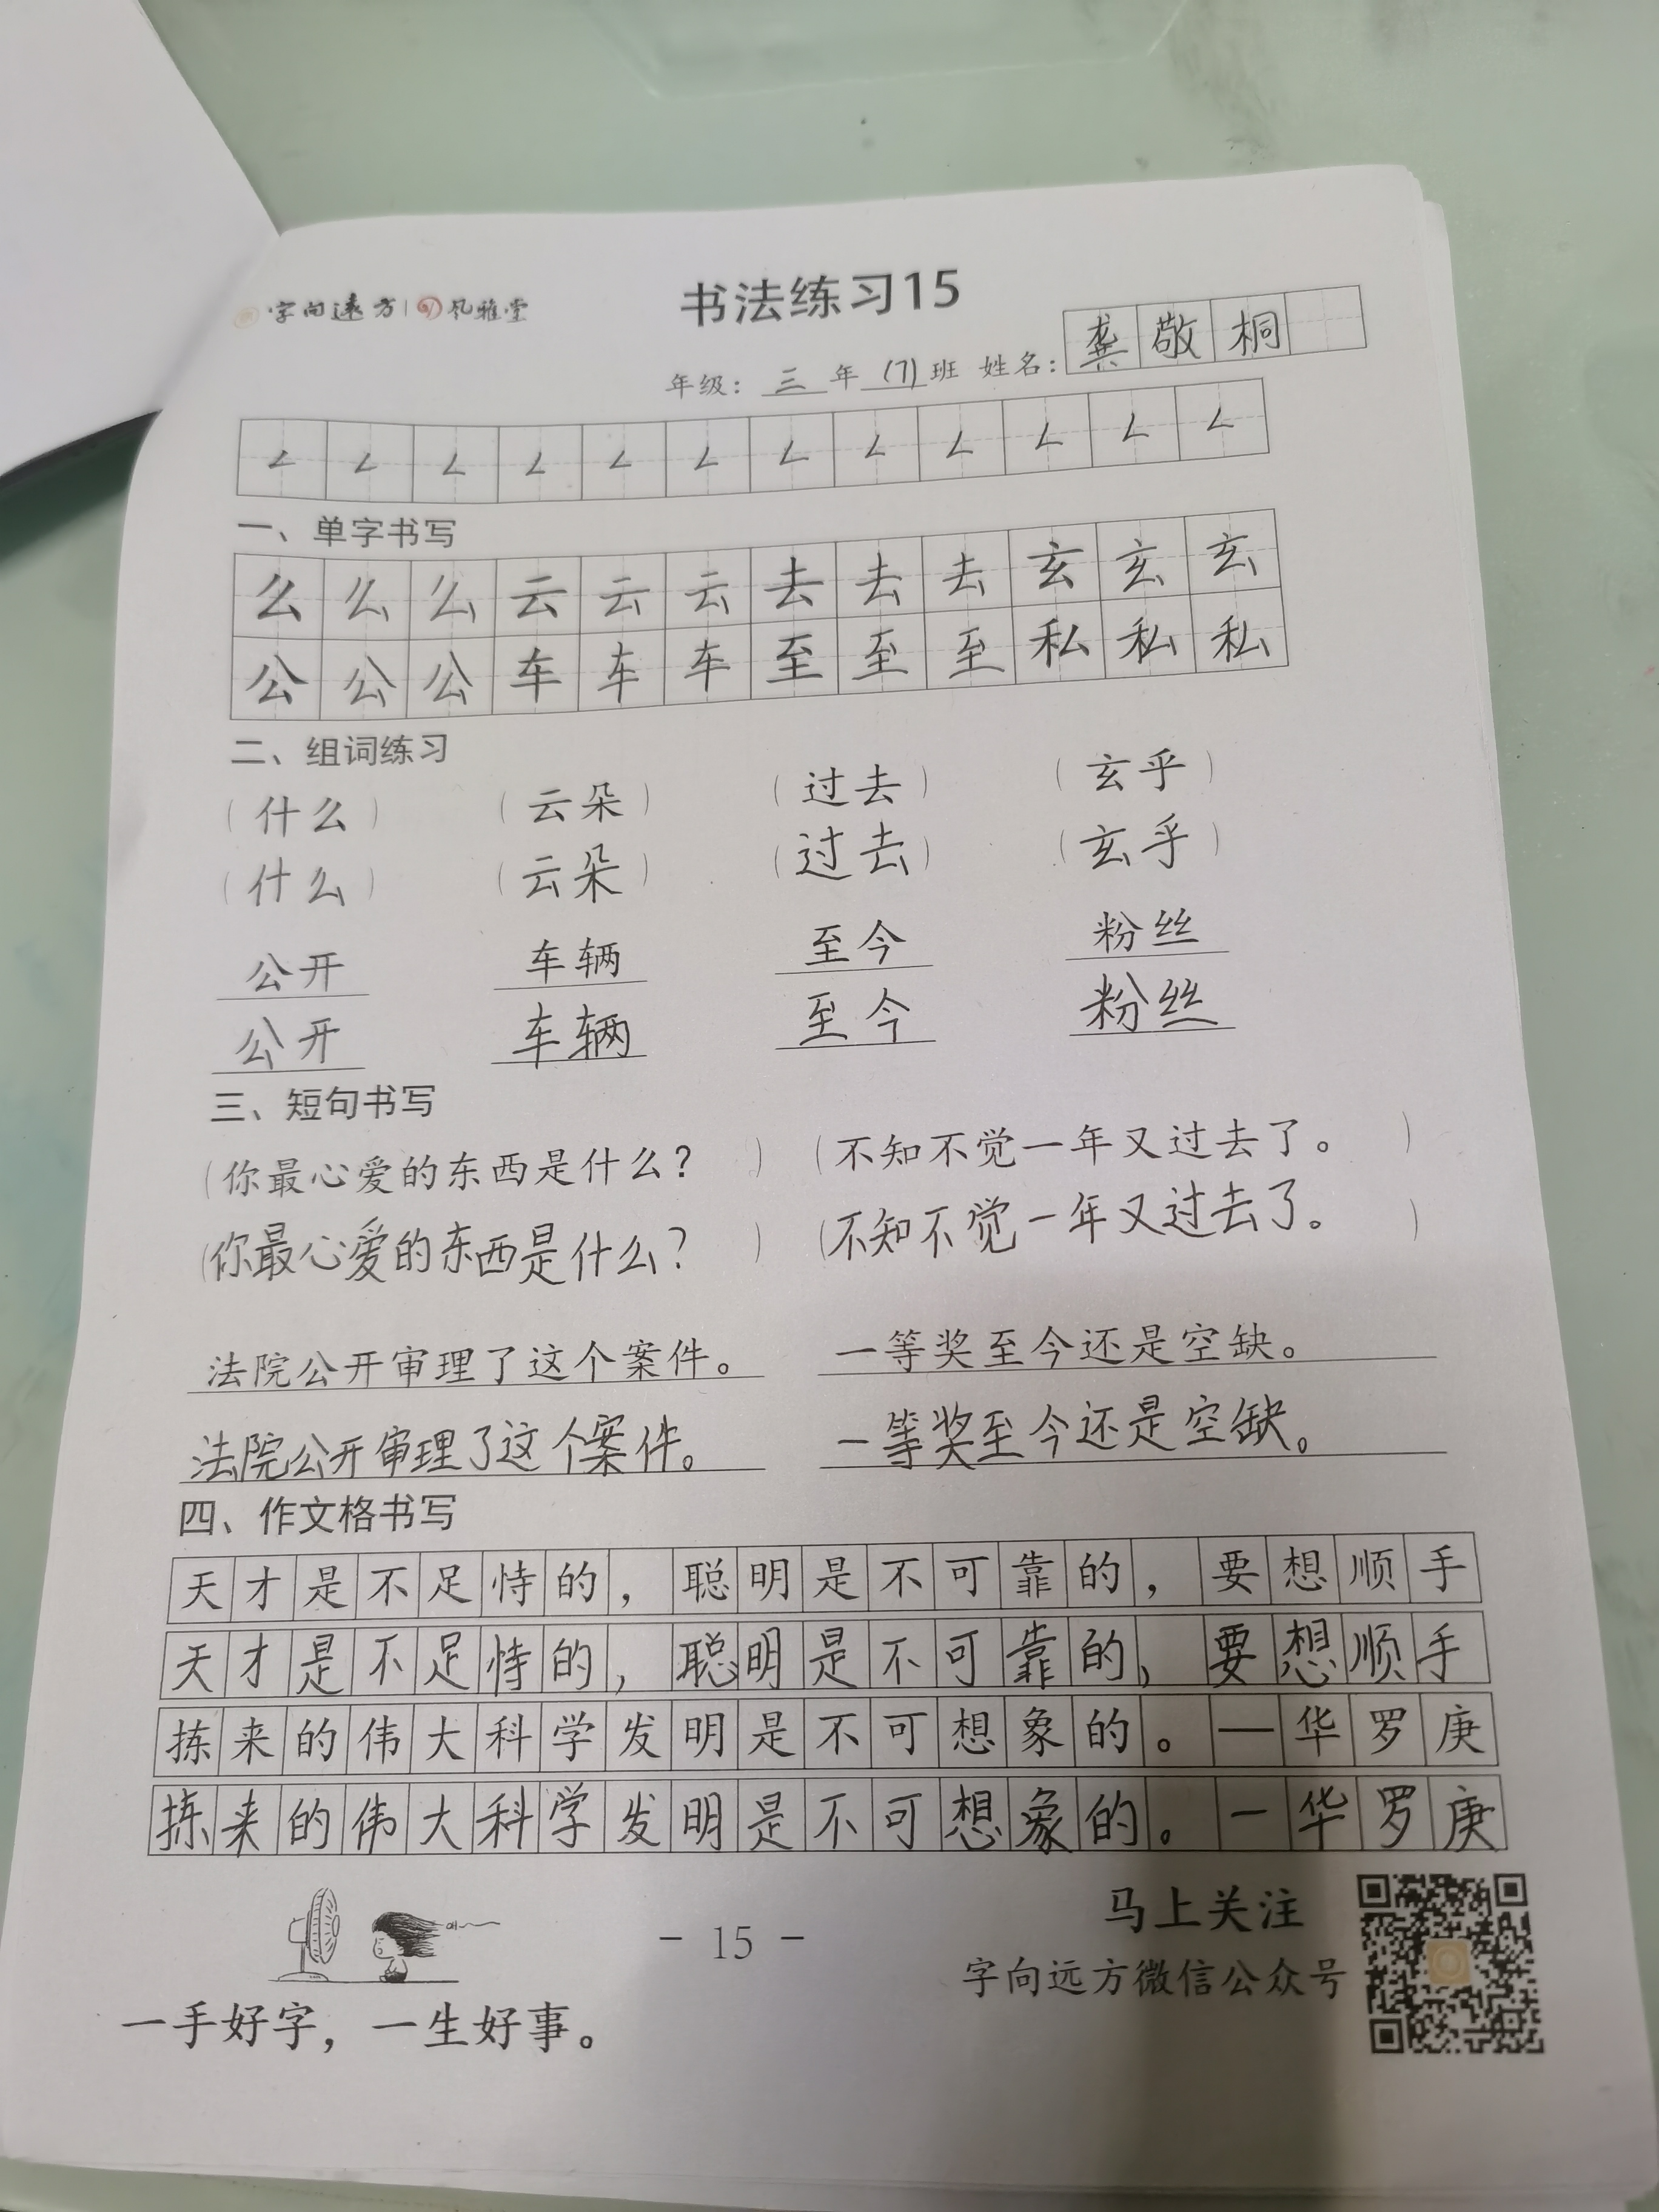 字向远方 | 风雅堂
书法练习15
年级：三年(7)班 姓名：龚敬桐
ㄥㄥㄥㄥㄥㄥㄥㄥㄥㄥㄥㄥ
一、单字书写
么么么云云云去去去玄玄玄
公公公车车车至至至私私私
二、组词练习
（什么）（云朵）（过去）（玄乎）
（什么）（云朵）（过去）（玄乎）
公开 车辆 至今 粉丝
公开 车辆 至今 粉丝
三、短句书写
（你最心爱的东西是什么？）（不知不觉一年又过去了。）
（你最心爱的东西是什么？）（不知不觉一年又过去了。）
法院公开审理了这个案件。 一等奖至今还是空缺。
法院公开审理了这个案件。 一等奖至今还是空缺。
四、作文格书写
天才是不足恃的，聪明是不可靠的，要想顺手
天才是不足恃的，聪明是不可靠的，要想顺手
拣来的伟大科学发明是不可想象的。—华罗庚
拣来的伟大科学发明是不可想象的。一华罗庚
- 15 -
马上关注
字向远方微信公众号
一手好字，一生好事。